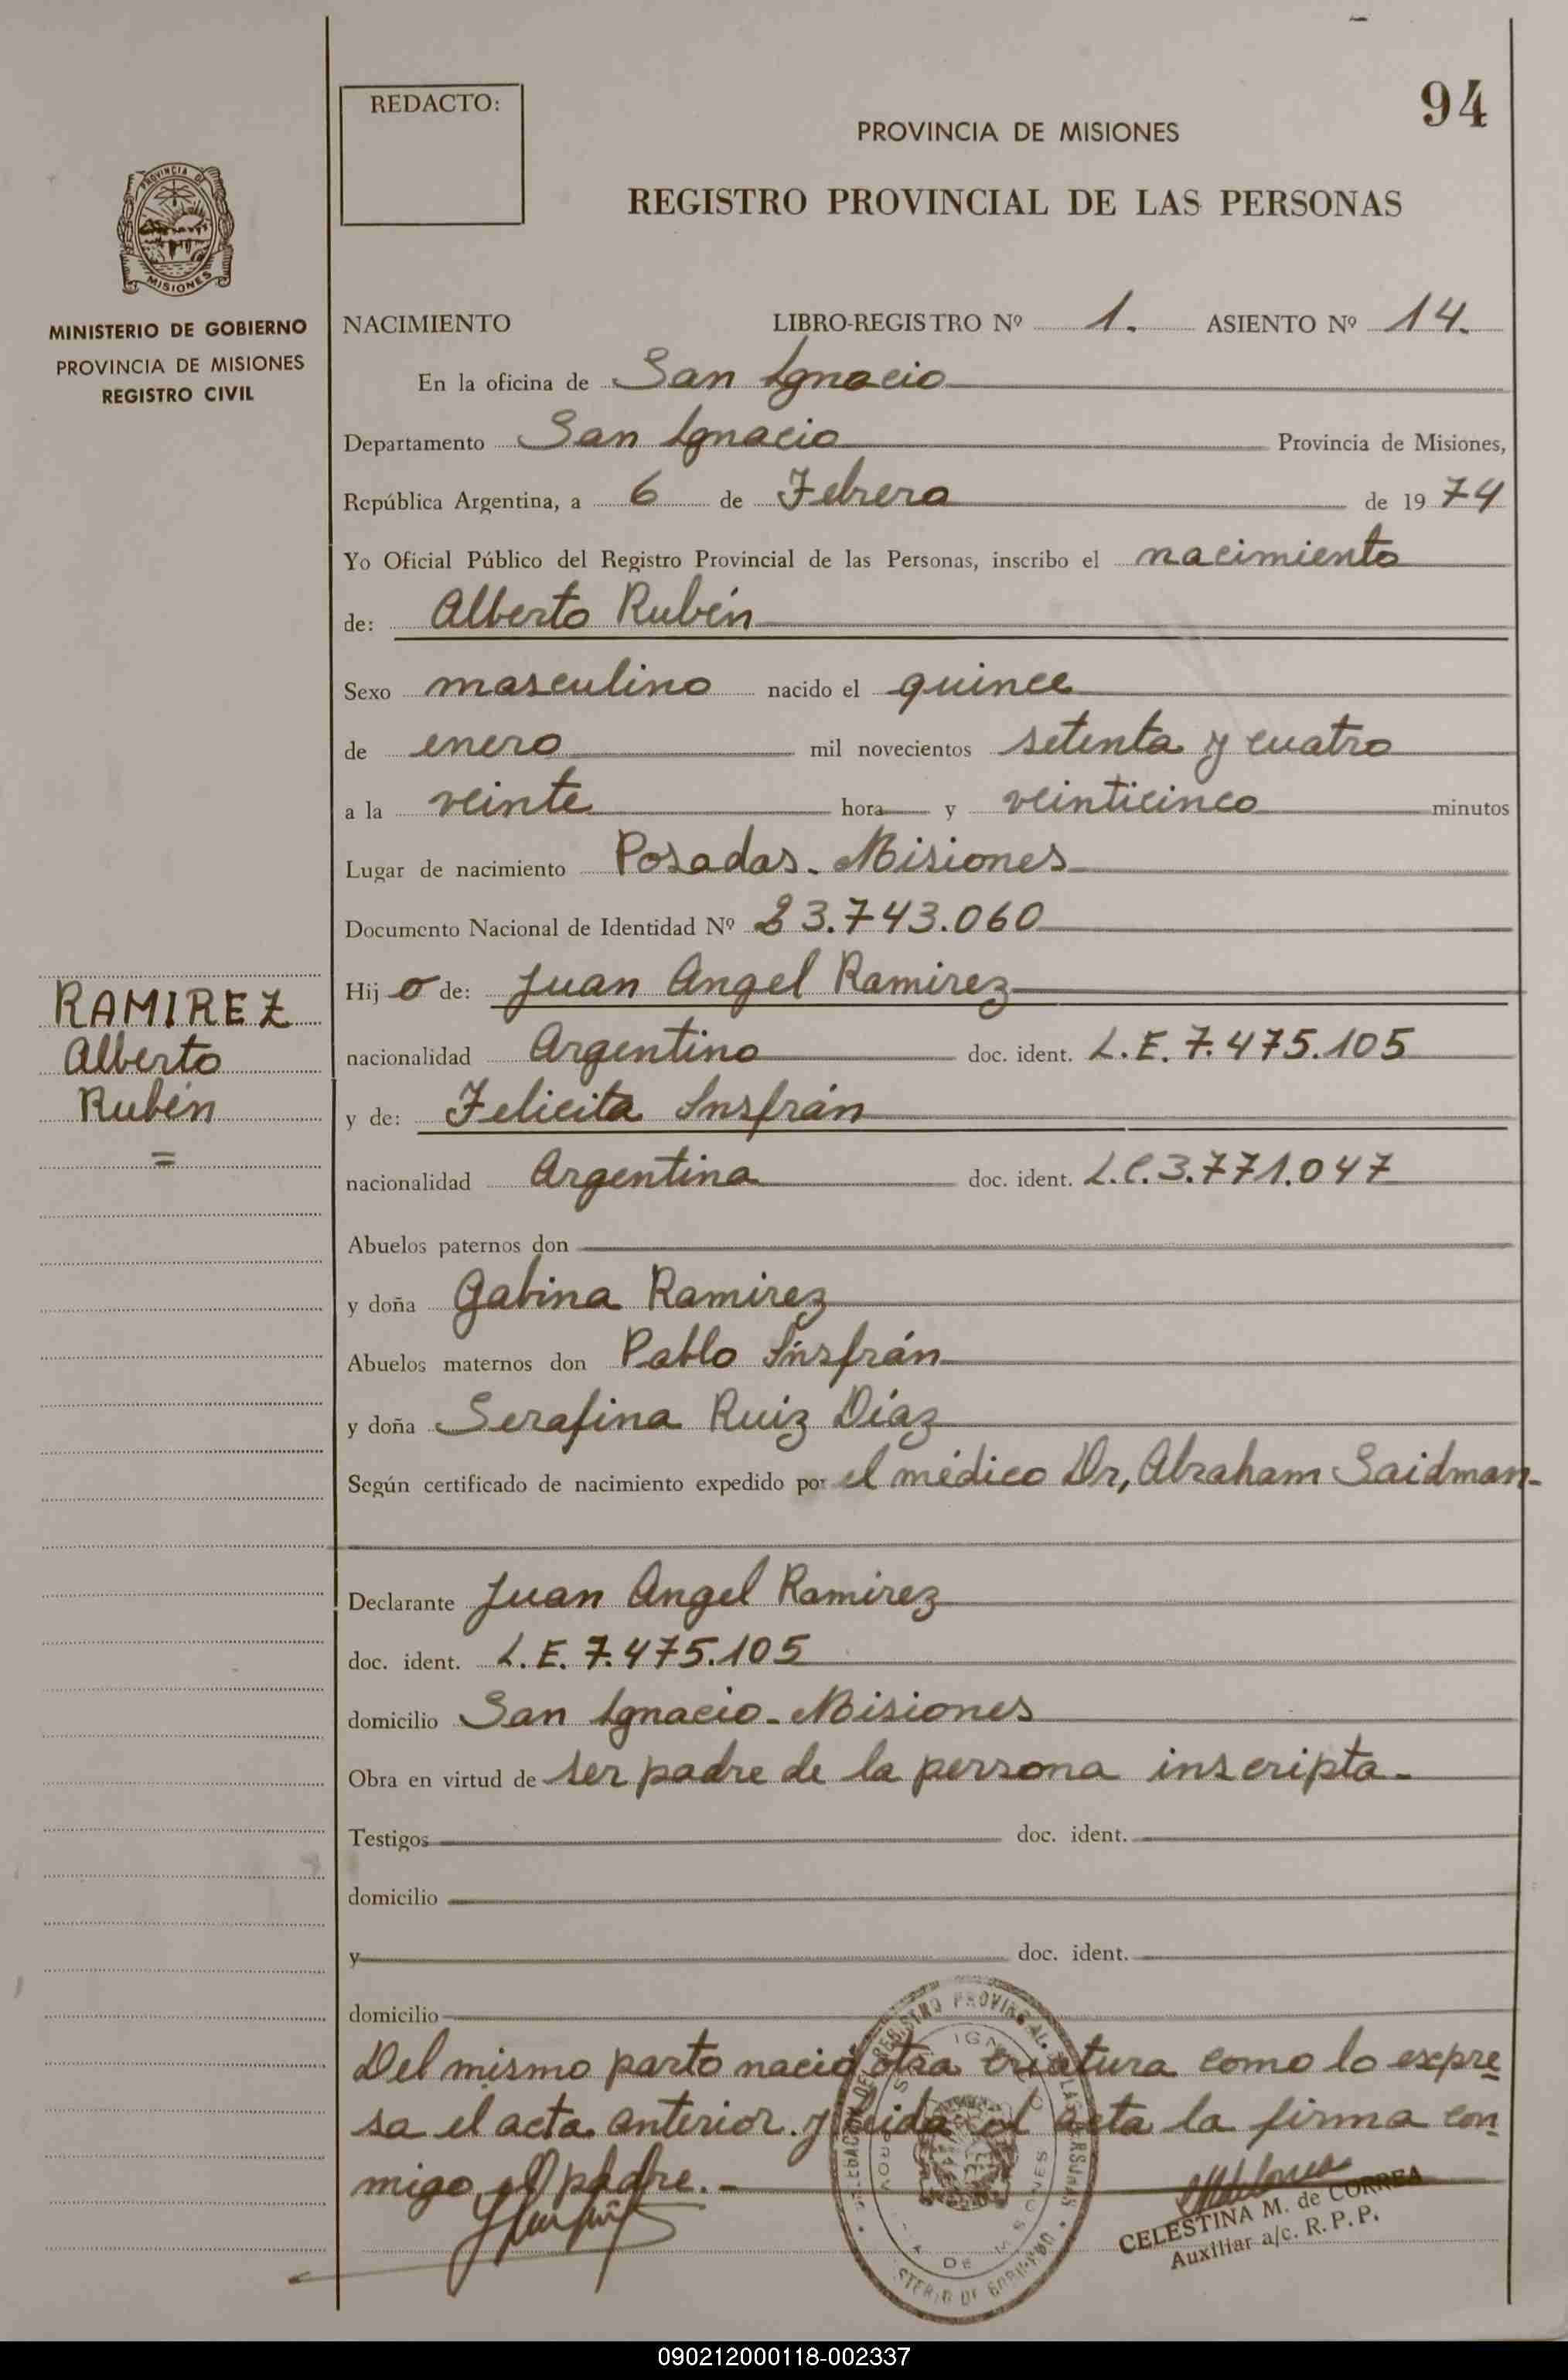 94
REDACTO:
PROVINCIA DE MISIONES
REGISTRO PROVINCIAL DE LAS PERSONAS
PROVINCIA DE
MISIONES
MINISTERIO DE GOBIERNO
PROVINCIA DE MISIONES
REGISTRO CIVIL
NACIMIENTO LIBRO-REGISTRO Nº 1. ASIENTO Nº 14.
En la oficina de San Ignacio
Departamento San Ignacio Provincia de Misiones,
República Argentina, a 6 de Febrero de 1974
Yo Oficial Público del Registro Provincial de las Personas, inscribo el nacimiento
de: Alberto Rubén
Sexo masculino nacido el quince
de enero mil novecientos setenta y cuatro
a la veinte hora y veinticinco minutos
Lugar de nacimiento Posadas. Misiones
Documento Nacional de Identidad Nº 23.743.060
RAMIREZ
Alberto
Rubén
=
Hijo de: Juan Angel Ramirez
nacionalidad Argentino doc. ident. L.E. 7.475.105
y de: Felicita Insfrán
nacionalidad Argentina doc. ident. L.C.3.771.047
Abuelos paternos don
y doña Gabina Ramirez
Abuelos maternos don Pablo Insfrán
y doña Serafina Ruiz Díaz
Según certificado de nacimiento expedido por el médico Dr, Abraham Saidman-
Declarante Juan Angel Ramirez
doc. ident. L.E. 7.475.105
domicilio San Ignacio-Misiones
Obra en virtud de ser padre de la persona inscripta-
Testigos doc. ident.
domicilio
y doc. ident.
domicilio
Del mismo parto nació otra criatura como lo expre
sa el acta anterior. y leida el acta la firma con
migo el padre.-
CELESTINA M. de CORREA
Auxiliar a/c. R. P. P.
090212000118-002337